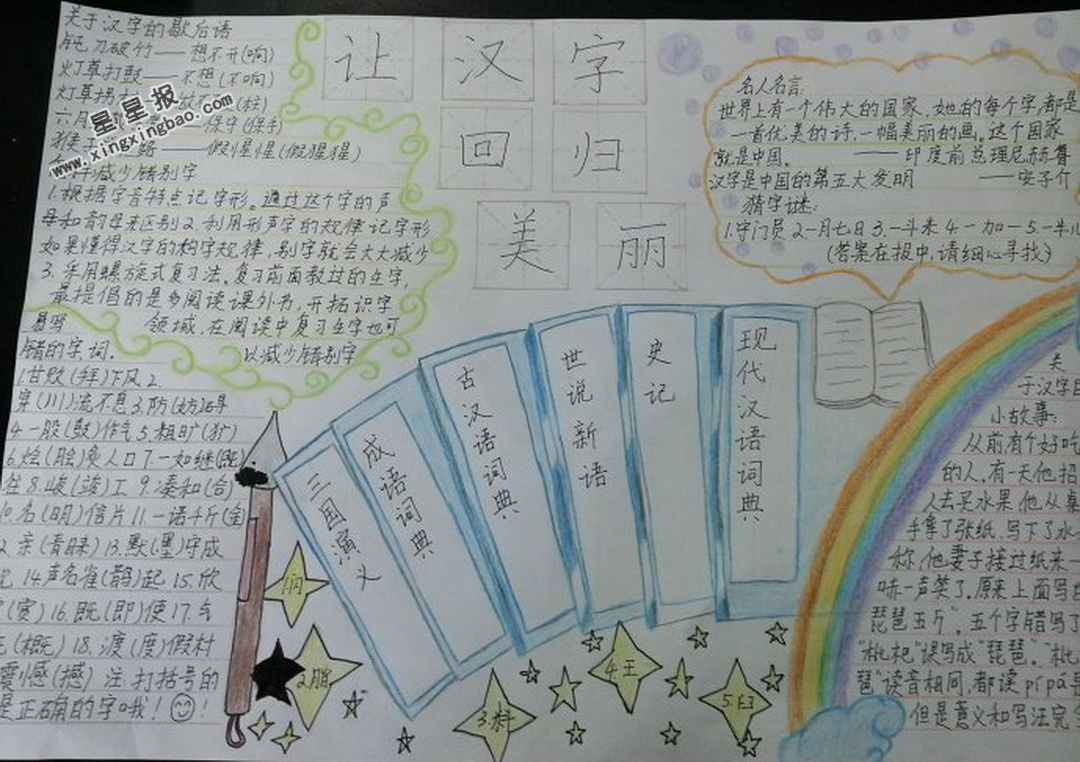 关于汉字的歇后语
钝刀破竹——想不开(响)
灯草打鼓——不想(不响)
灯草拐
六月 ——保守(保手)
猴子 ——假惺惺(假猩猩)
星星报
www.xingxingbao.com
样减少错别字
1.根据字音特点记字形。通过这个字的声
母和韵母来区别2.利用形声字的规律记字形
如果懂得汉字的构字规律,别字就会大大减少
3.采用螺旋式复习法。复习前面教过的生字,
最提倡的是多阅读课外书,开拓识字
领域.在阅读中复习生字也可
以减少错别字
易写
错的字词。
1.甘败(拜)下风 2.
穿(川)流不息 3.防(妨)碍
4.一股(鼓)作气 5.粗旷(犷)
6.烩(脍)炙人口 7.一如继(既)
往 8.峻(竣)工 9.凑和(合)
10.名(明)信片 11.一诺千斤(金)
2.亲(青睐) 13.默(墨)守成
14.声名雀(鹊)起 15.欣
(赏) 16.既(即)使 17.气
(概) 18.渡(度)假村
震憾(撼) 注打括号的
是正确的字哦!
让汉字
回归
美丽
名人名言:
世界上有一个伟大的国家,她的每个字,都是
一首优美的诗,一幅美丽的画。这个国家
就是中国。——印度前总理尼赫鲁
汉字是中国的第五大发明 ——安子介
猜字谜:
1.守门员 2.一月七日 3.一斗米 4.一加一 5.一半儿
(答案在报中,请细心寻找)
三国演义
成语词典
古汉语词典
世说新语
史记
现代汉语词典
1.闪
2.脂
3.料
4.王
5.归
关
于汉字
小故事:
从前,有个好吃
的人,有一天他招
人去买水果,他从桌
手拿了张纸,写下了水
称,他妻子接过纸来一
哧一声笑了.原来上面写
琵琶五斤。五个字错写了
"枇杷"误写成"琵琶"。"枇
琶"读音相同,都读pípá
但是意义和写法完